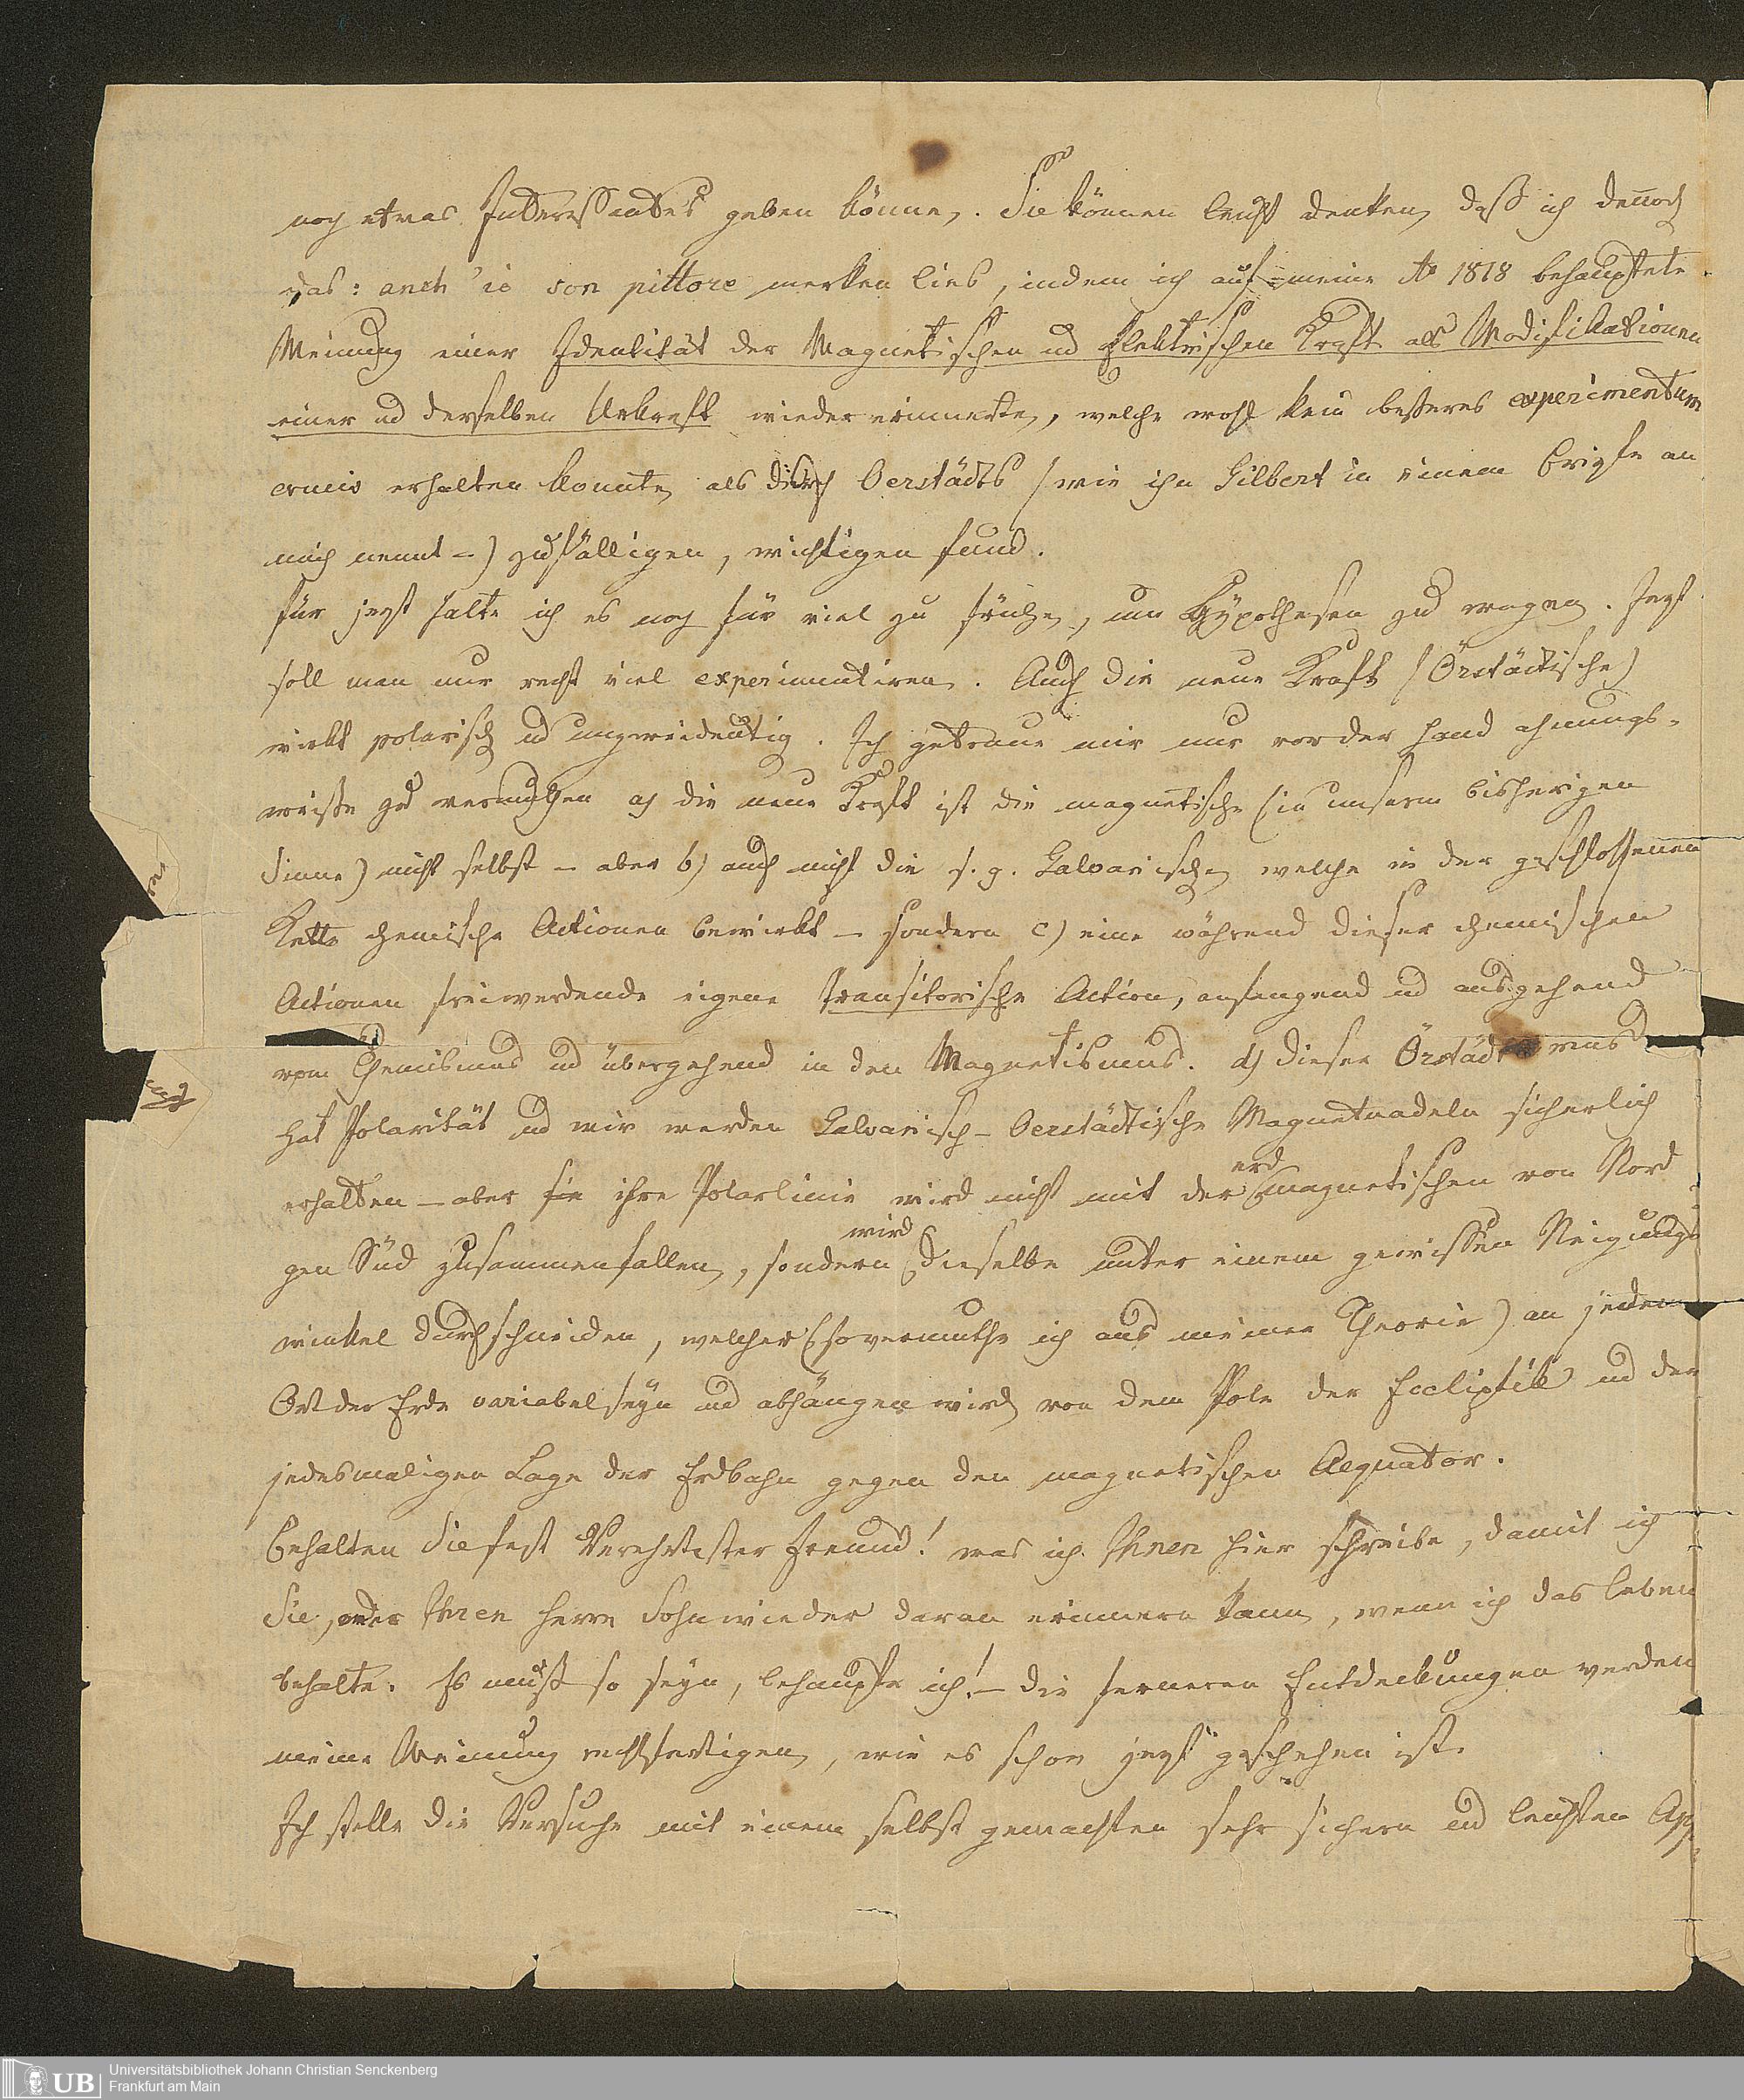 noch etwas Interessantes geben könne. Sie können leicht denken, daß ich dennoch
das: anch'io son pittore merken lies, indem ich auf meine Ao 1818 behauptete
Meinung einer Identität der Magnetischen und Elektrischen Kraft als Modifikationen
einer und derselben Urkraft wieder erinnerte, welche wohl kein besseres experimentum
crucis erhalten konnte, als durch Oerstädts (wie ihn Gilbert in einem Briefe an
mich nennt -) zufälligen, wichtigen Fund.
Für jezt halte ich es noch für viel zu frühe, um Hÿpothesen zu wagen. Jezt
soll man nur recht viel experimentiren. Auch die neue Kraft (Örstädtische)
wirkt polarisch und unzweideutig. Ich getraue mir nur vor der Hand ahnungs-
weise zu vermuthen a) die neue Kraft ist die magnetische (in unserm bisherigen
Sinne) nicht selbst - aber b) auch nicht die s. g. Galvanische, welche in der geschlossenen
Kette chemische Actionen bewirkt - sondern c) eine während dieser chemischen
Actionen freiwerdende eigene transitorische Action, anfangend und ausgehend
vom Chemismus und übergehend in den Magnetismus. d) dieser Örstädt mus
hat Polarität und wir werden Galvanisch-Oerstädtische Magnetnadeln sicherlich
erhalten - aber sie ihre Polarlinie wird nicht mit der erdmagnetischen von Nord
gen Süd zusammenfallen, sondern wird dieselbe unter einem gewissen Neigungs
winkel durchschneiden, welcher (so vermuthe ich aus meiner Theorie) an jedem
Ort der Erde variabel seyn und abhängen wird, von dem Pole der Eccliptik und der
jedesmaligen Lage der Erdbahn gegen den magnetischen Aequator.
Behalten Sie fest Verehrtester Freund! was ich Ihnen hier schreibe, damit ich
Sie, oder Ihren Herrn Sohn wieder daran erinnern kann, wenn ich das Leben
behalte. Es muß so seyn, behaupte ich! - die ferneren Entdeckungen werden
meine Meinung rechtfertigen, wie es schon jezt geschehen ist.
Ich stelle die Versuche mit einem selbst gemachten sehr sichern und leichten Ap
UB
Universitätsbibliothek Johann Christian Senckenberg
Frankfurt am Main